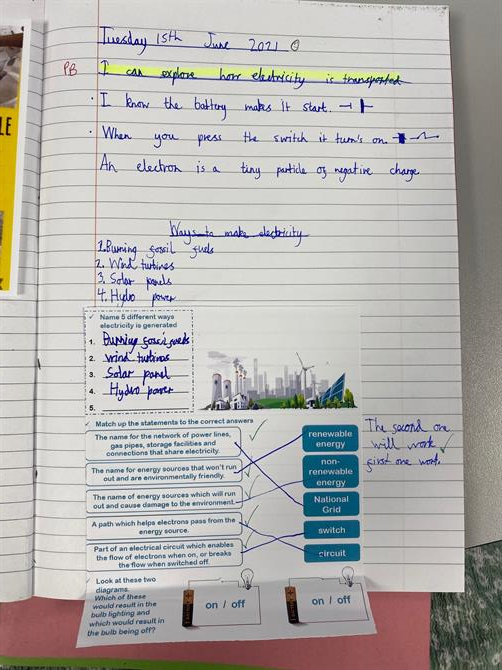 Tuesday 15th June 2021
PB
I can explore how electricity is transported
· I know the battery makes it start.
· When you press the switch it turn's on.
An electron is a tiny particle of negative charge
Ways to make electricity
1. Burning fossil fuels
2. Wind turbines
3. Solar panels
4. Hydro power
LE
Name 5 different ways
electricity is generated
1. Burning fossil fuels
2. wind turbines
3. Solar panel
4. Hydro power
5.
Match up the statements to the correct answers
The name for the network of power lines,
gas pipes, storage facilities and
connections that share electricity.
The name for energy sources that won't run
out and are environmentally friendly.
The name of energy sources which will run
out and cause damage to the environment.
A path which helps electrons pass from the
energy source.
Part of an electrical circuit which enables
the flow of electrons when on, or breaks
the flow when switched off.
renewable
energy
non-
renewable
energy
National
Grid
switch
circuit
The second one
will work
first one wont.
Look at these two
diagrams.
Which of these
would result in the
bulb lighting and
which would result in
the bulb being off?
on / off
on / off